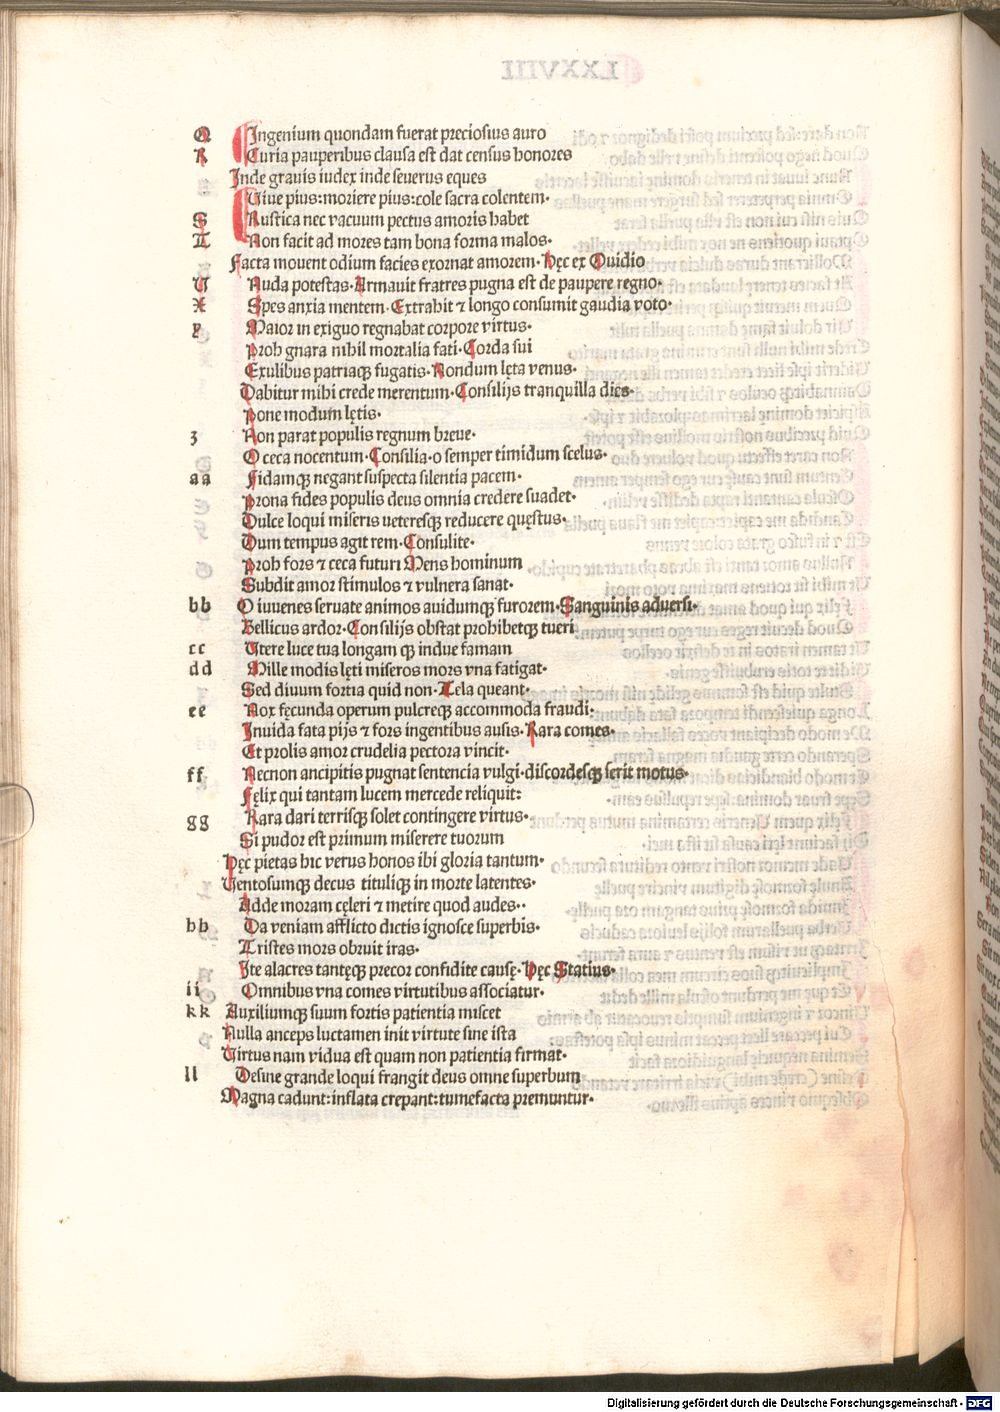 Q Ingenium quondam fuerat preciosius auro
R Curia pauperibus clausa est dat census honores
Inde grauis iudex inde seuerus eques
Viue pius:moriere pius:cole sacra colentem·
S Rustica nec vacuum pectus amoris habet
T Non facit ad mores tam bona forma malos·
Facta mouent odium facies exornat amorem· Hęc ex Ouidio
U Nuda potestas· Armauit fratres pugna est de paupere regno·
X Spes anxia mentem· Extrahit ⁊ longo consumit gaudia voto·
y Maior in exiguo regnabat corpore virtus·
Proh gnara nihil mortalia fati· Corda sui
Exulibus patriaqꝫ fugatis· Nondum lęta venus·
Dabitur mihi crede merentum· Consilijs tranquilla dies·
Pone modum lętis·
z Non parat populis regnum breue·
O ceca nocentum· Consilia·o semper timidum scelus·
aa Fidamqꝫ negant suspecta silentia pacem·
Prona fides populis deus omnia credere suadet·
Dulce loqui miseris ueteresqꝫ reducere quęstus·
Dum tempus agit rem· Consulite·
Proh fors ⁊ ceca futuri Mens hominum
Subdit amor stimulos ⁊ vulnera sanat·
bb O iuuenes seruate animos auidumqꝫ furorem· Sanguinis aduersi·
Bellicus ardor· Consilijs obstat prohibetqꝫ tueri
cc Utere luce tua longam qꝫ indue famam
dd Mille modis lęti miseros mors vna fatigat·
Sed diuum fortia quid non· Tela queant·
ee Nox fęcunda operum pulcreqꝫ accommoda fraudi·
Inuida fata pijs ⁊ fors ingentibus ausis· Rara comes·
Et prolis amor crudelia pectora vincit·
ff Necnon ancipitis pugnat sentencia vulgi·discordesqꝫ serit motus·
Fęlix qui tantam lucem mercede reliquit:
gg Rara dari terrisqꝫ solet contingere virtus·
Si pudor est primum miserere tuorum
Hęc pietas hic verus honos ibi gloria tantum·
Ventosumqꝫ decus tituliqꝫ in morte latentes·
Adde moram cęleri ⁊ metire quod audes··
hh Da veniam afflicto dictis ignosce superbis·
Tristes mors obruit iras·
Ite alacres tantęqꝫ precor confidite causę· Hęc Statius·
ii Omnibus vna comes virtutibus associatur·
kk Auxiliumqꝫ suum fortis patientia miscet
Nulla anceps luctamen init virtute sine ista
Virtus nam vidua est quam non patientia firmat·
ll Desine grande loqui frangit deus omne superbum
Magna cadunt:inflata crepant:tumefacta premuntur·
Digitalisierung gefördert durch die Deutsche Forschungsgemeinschaft - DFG